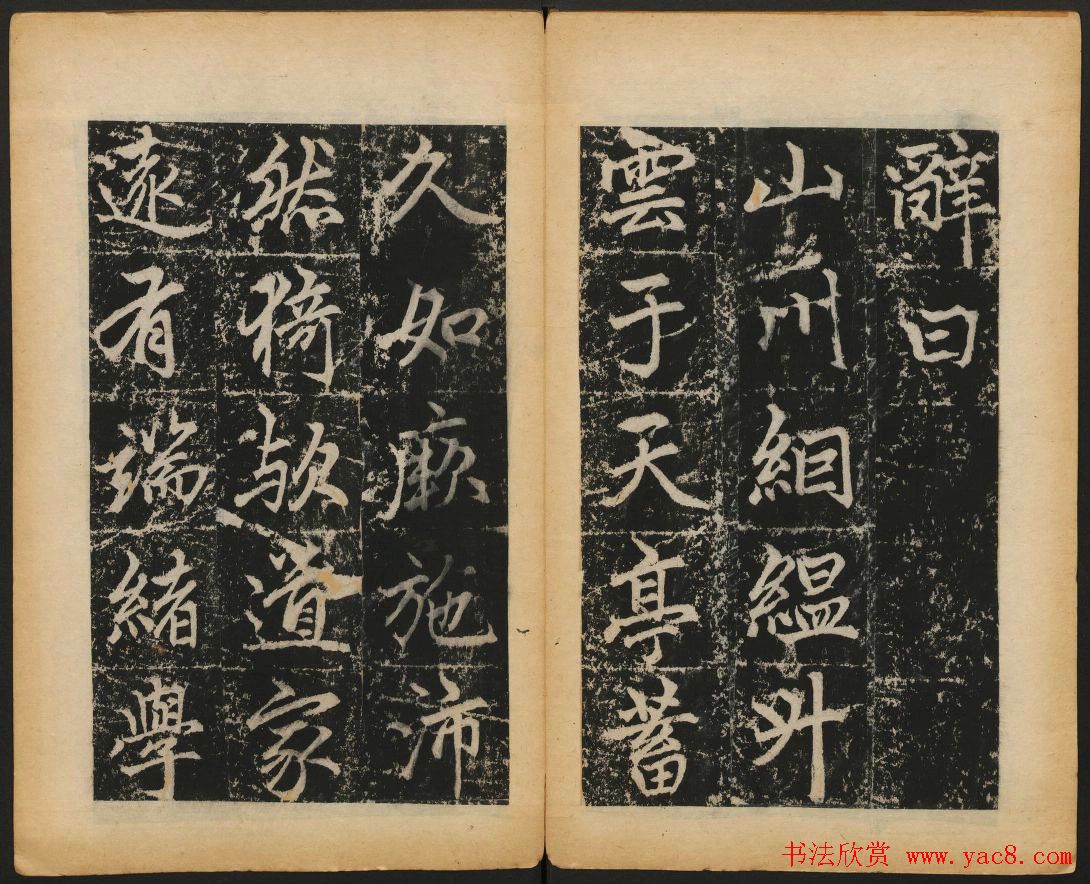 辭曰
山川絪縕升
雲于天亭蓄
久如厥施沛
然猗歟道家
遠有端緒學
书法欣赏 www.yac8.com